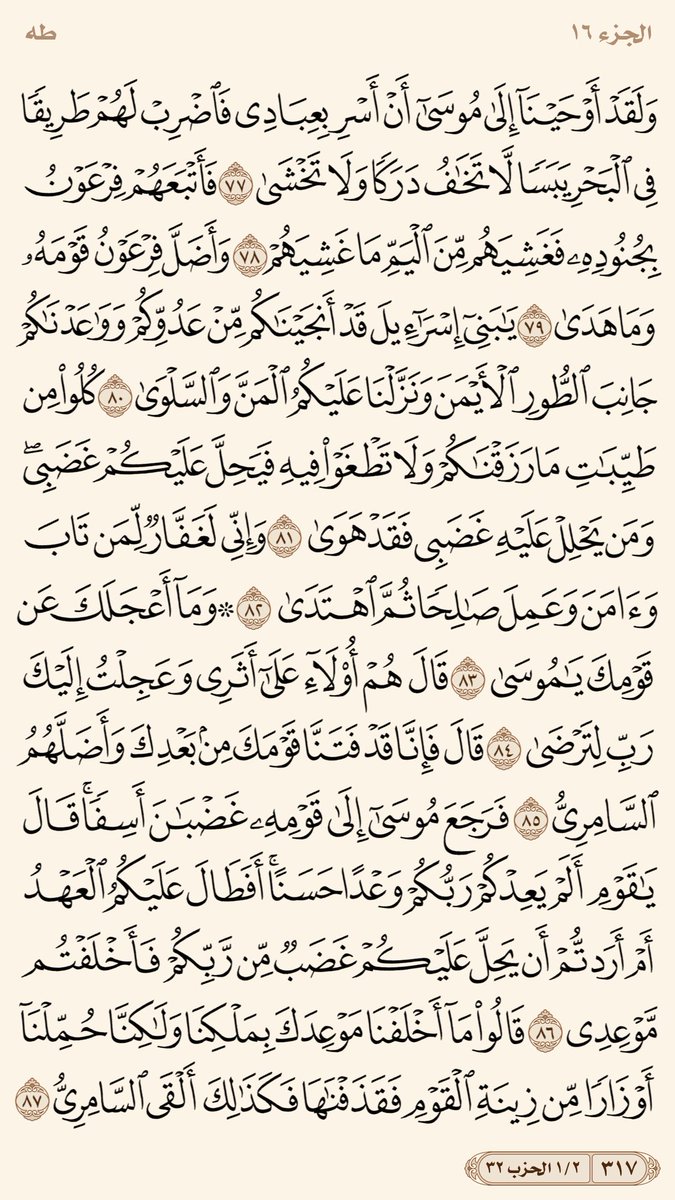 الجزء ١٦ طه
وَلَقَدۡ أَوۡحَيۡنَآ إِلَىٰ مُوسَىٰٓ أَنۡ أَسۡرِ بِعِبَادِي فَٱضۡرِبۡ لَهُمۡ طَرِيقٗا
فِي ٱلۡبَحۡرِ يَبَسٗا لَّا تَخَٰفُ دَرَكٗا وَلَا تَخۡشَىٰ ٧٧ فَأَتۡبَعَهُمۡ فِرۡعَوۡنُ
بِجُنُودِهِۦ فَغَشِيَهُم مِّنَ ٱلۡيَمِّ مَا غَشِيَهُمۡ ٧٨ وَأَضَلَّ فِرۡعَوۡنُ قَوۡمَهُۥ
وَمَا هَدَىٰ ٧٩ يَٰبَنِيٓ إِسۡرَٰٓءِيلَ قَدۡ أَنجَيۡنَٰكُم مِّنۡ عَدُوِّكُمۡ وَوَٰعَدۡنَٰكُمۡ
جَانِبَ ٱلطُّورِ ٱلۡأَيۡمَنَ وَنَزَّلۡنَا عَلَيۡكُمُ ٱلۡمَنَّ وَٱلسَّلۡوَىٰ ٨٠ كُلُواْ مِن
طَيِّبَٰتِ مَا رَزَقۡنَٰكُمۡ وَلَا تَطۡغَوۡاْ فِيهِ فَيَحِلَّ عَلَيۡكُمۡ غَضَبِيۖ
وَمَن يَحۡلِلۡ عَلَيۡهِ غَضَبِي فَقَدۡ هَوَىٰ ٨١ وَإِنِّي لَغَفَّارٞ لِّمَن تَابَ
وَءَامَنَ وَعَمِلَ صَٰلِحٗا ثُمَّ ٱهۡتَدَىٰ ٨٢ ۞ وَمَآ أَعۡجَلَكَ عَن
قَوۡمِكَ يَٰمُوسَىٰ ٨٣ قَالَ هُمۡ أُوْلَآءِ عَلَىٰٓ أَثَرِي وَعَجِلۡتُ إِلَيۡكَ
رَبِّ لِتَرۡضَىٰ ٨٤ قَالَ فَإِنَّا قَدۡ فَتَنَّا قَوۡمَكَ مِنۢ بَعۡدِكَ وَأَضَلَّهُمُ
ٱلسَّامِرِيُّ ٨٥ فَرَجَعَ مُوسَىٰٓ إِلَىٰ قَوۡمِهِۦ غَضۡبَٰنَ أَسِفٗاۚ قَالَ
يَٰقَوۡمِ أَلَمۡ يَعِدۡكُمۡ رَبُّكُمۡ وَعۡدًا حَسَنًاۚ أَفَطَالَ عَلَيۡكُمُ ٱلۡعَهۡدُ
أَمۡ أَرَدتُّمۡ أَن يَحِلَّ عَلَيۡكُمۡ غَضَبٞ مِّن رَّبِّكُمۡ فَأَخۡلَفۡتُم
مَّوۡعِدِي ٨٦ قَالُواْ مَآ أَخۡلَفۡنَا مَوۡعِدَكَ بِمَلۡكِنَا وَلَٰكِنَّا حُمِّلۡنَآ
أَوۡزَارٗا مِّن زِينَةِ ٱلۡقَوۡمِ فَقَذَفۡنَٰهَا فَكَذَٰلِكَ أَلۡقَى ٱلسَّامِرِيُّ ٨٧
٣١٧ ١/٢ الحزب ٣٢